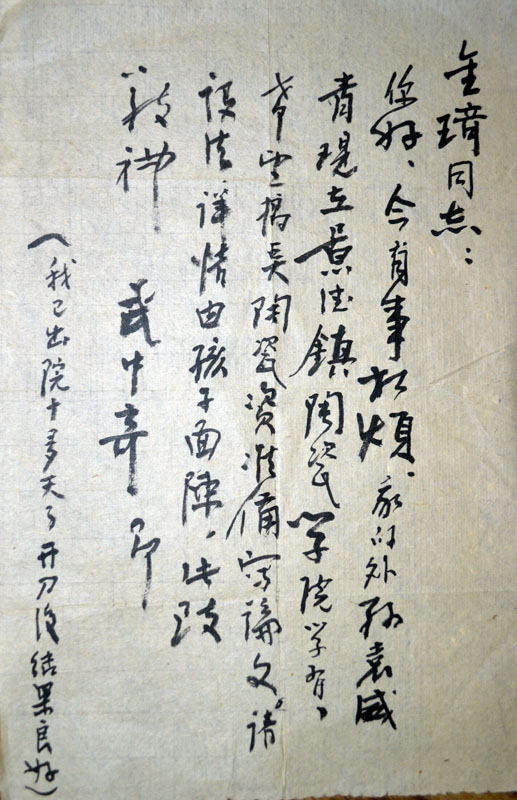 金琦同志：
你好、今有事相烦、我的外孙袁威
青现在景德鎮陶瓷学院学习、
希望搞点陶瓷资准备写论文。请
设法、详情由孩子面陈，此致
敬礼 武中奇
（我已出院十多天了开刀後结果良好）